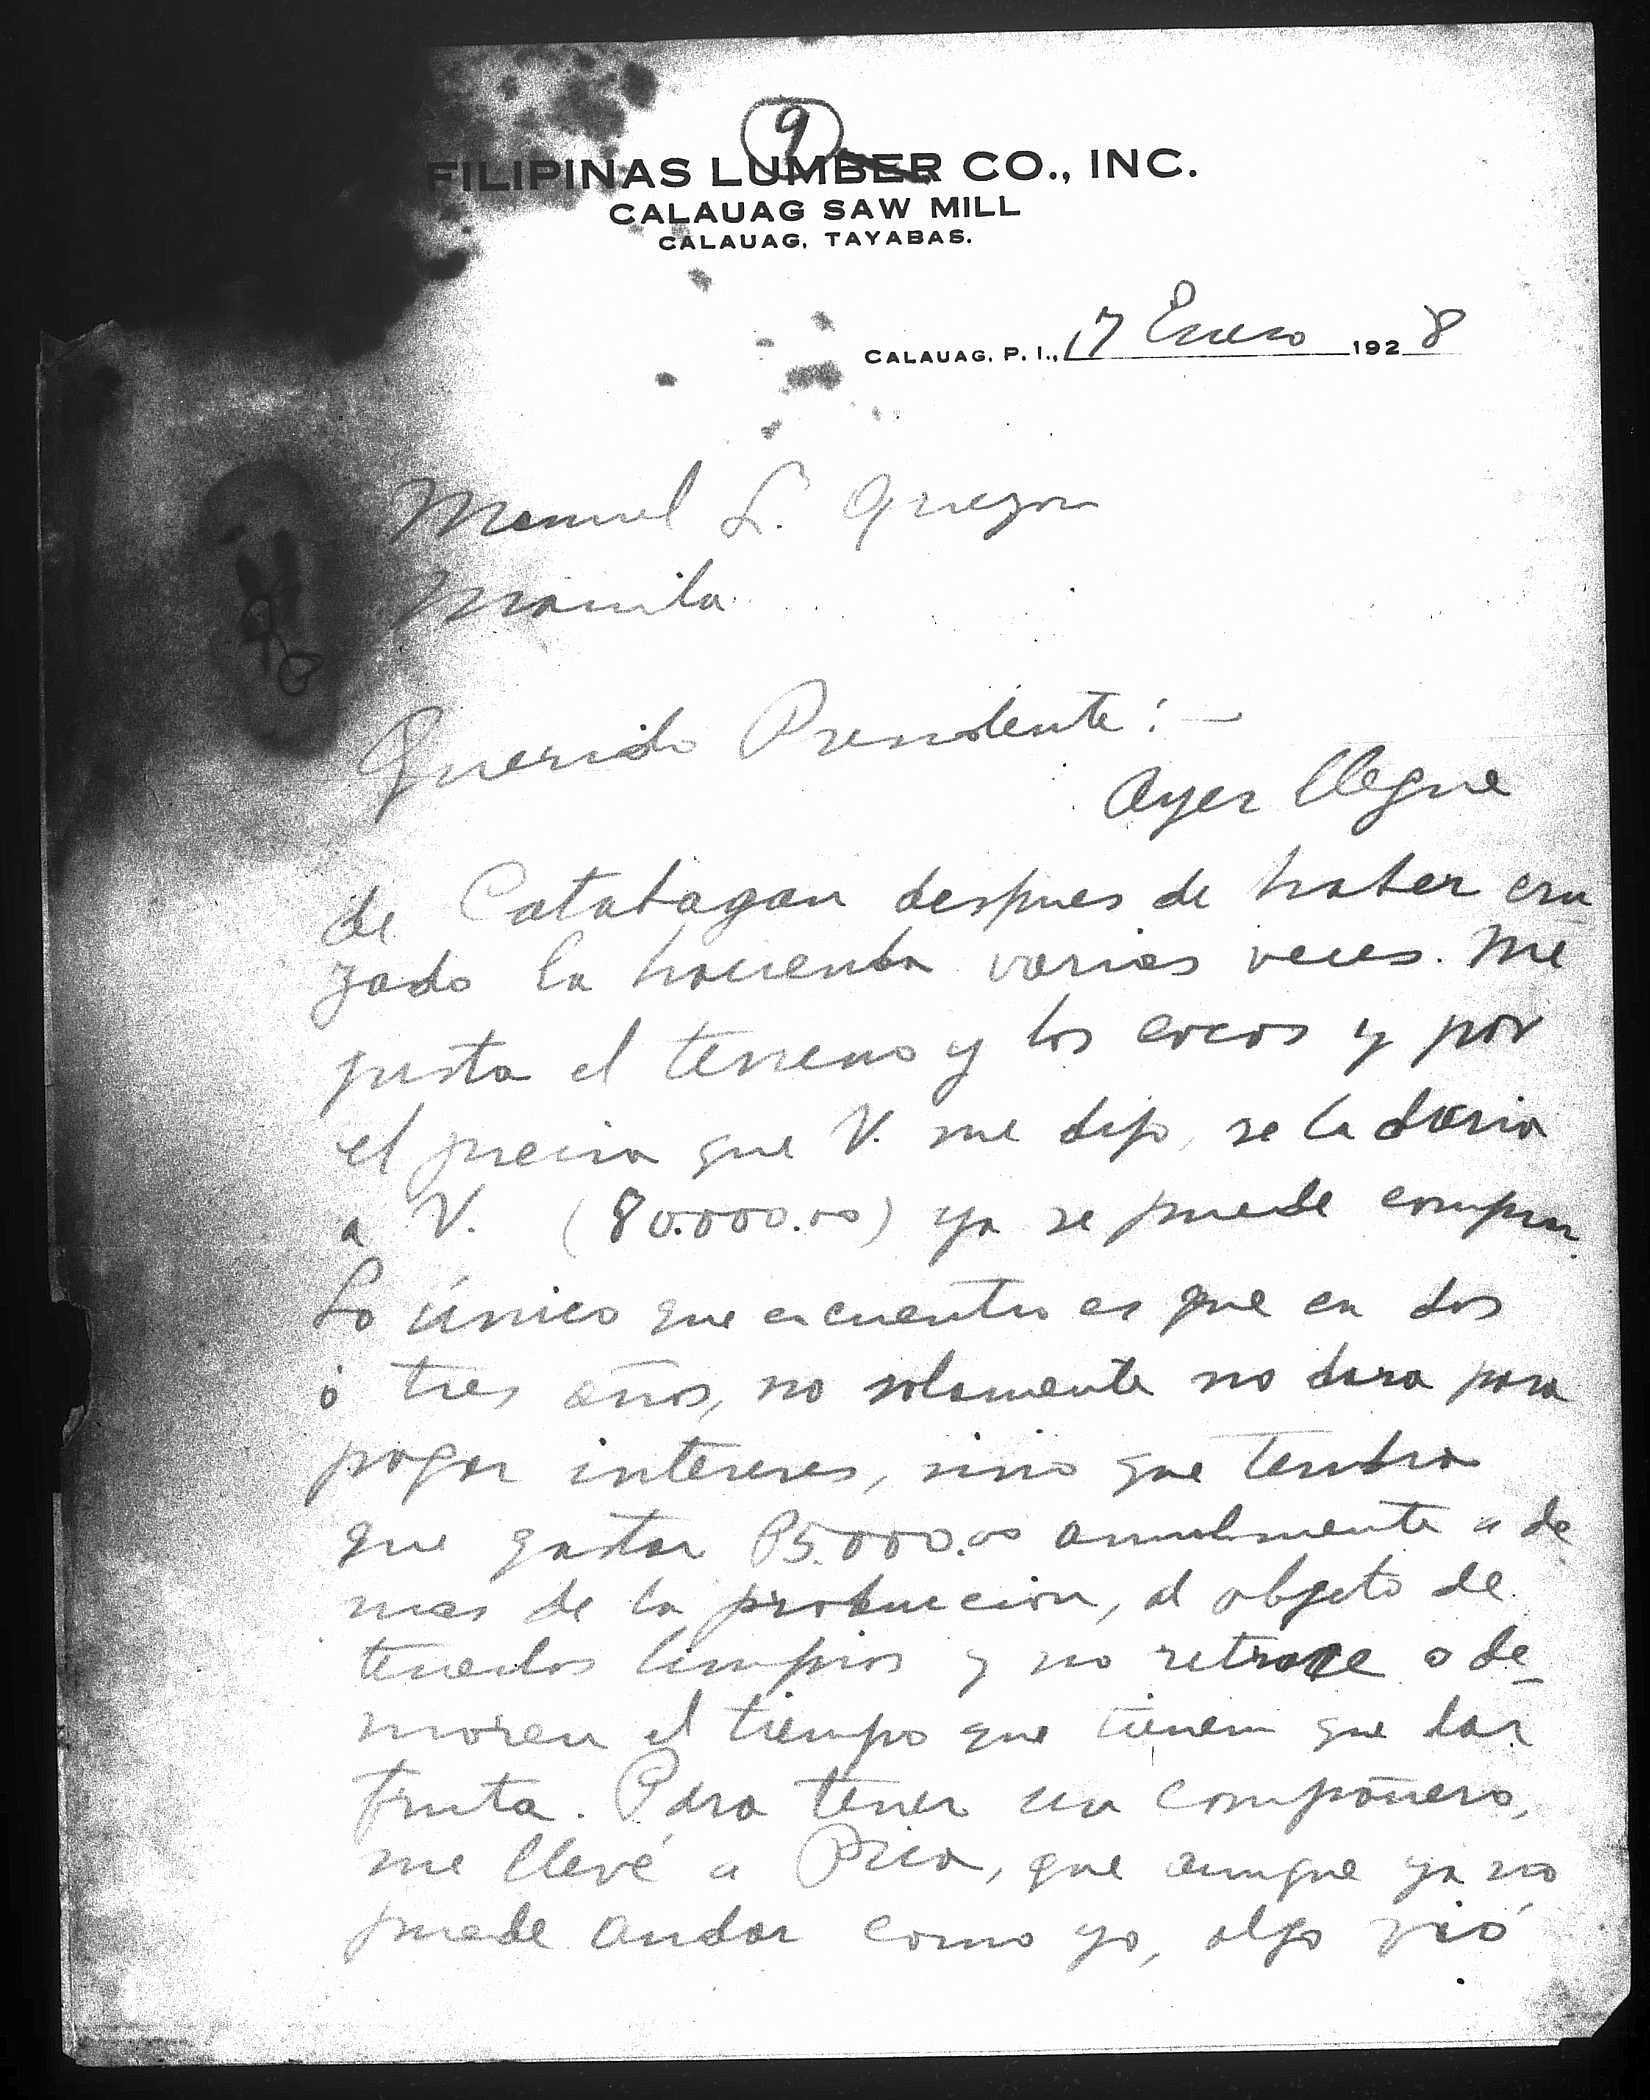 9
FILIPINAS LUMBER CO., INC.
CALAUAG SAW MILL
CALAUAG, TAYABAS.
CALAUAG, P. I., 17 Enero 1928
Manuel L. Quezon
Manila
Querido Presidente: —
Ayer llegue
de Catabagan despues de haber cru-
zado la hacienda varias veces. Me
gusta el terreno y los cocos y por
el precio que V. me dijo, se la daria
a V. (80.000.00) ya se puede comprar.
Lo único que encuentro es que en dos
ó tres años, no solamente no dara para
pagar intereses, sino que tendra
que gastar P5.000.00 anualmente a de
mas de la produccion, al objeto de
tenerlos limpios y no retrase o de-
moren el tiempo que tienen que dar
fruta. Para tener un compañero,
me llevé a Pica, que aunque ya no
puede andar como yo, algo vió